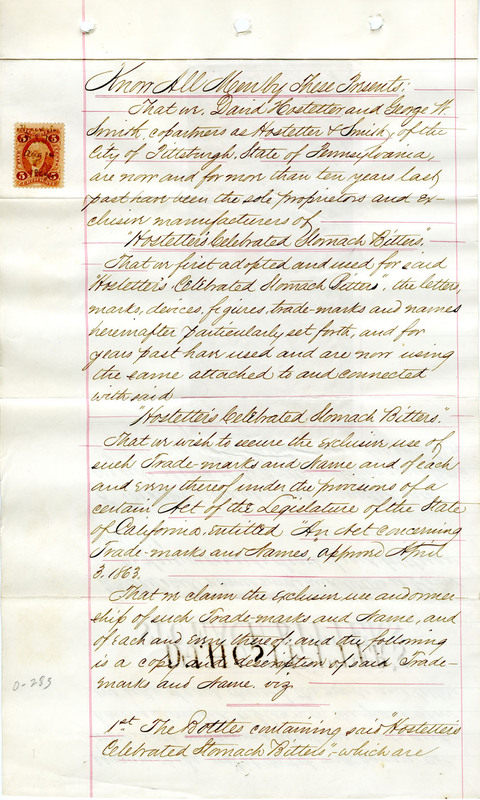 Know All Men by These Presents:
That we, David Hostetter and George W.
Smith, copartners as Hostetter & Smith, of the
City of Pittsburgh, State of Pennsylvania,
are now and for more than ten years last
past have been the sole proprietors and ex-
clusive manufacturers of
"Hostetter's Celebrated Stomach Bitters".
That we first adopted and used for said
"Hostetter's Celebrated Stomach Bitters", the letters,
marks, devices, figures, trade-marks and names
hereinafter particularly set forth, and for
years past have used and are now using
the same attached to and connected
with said
"Hostetter's Celebrated Stomach Bitters".
That we wish to secure the exclusive use of
such Trade-marks and Name, and of each
and every thereof under the provisions of a
certain Act of the Legislature of the State
of California, entitled "An Act concerning
Trade-marks and Names, approved April
3, 1863.
That we claim the exclusive use and owner-
ship of such Trade-marks and Name, and
of each and every thereof; and the following
is a copy and description of said Trade-
marks and Name, viz.
0-283
1st The Bottles containing said "Hostetter's
Celebrated Stomach Bitters", which are
5
5